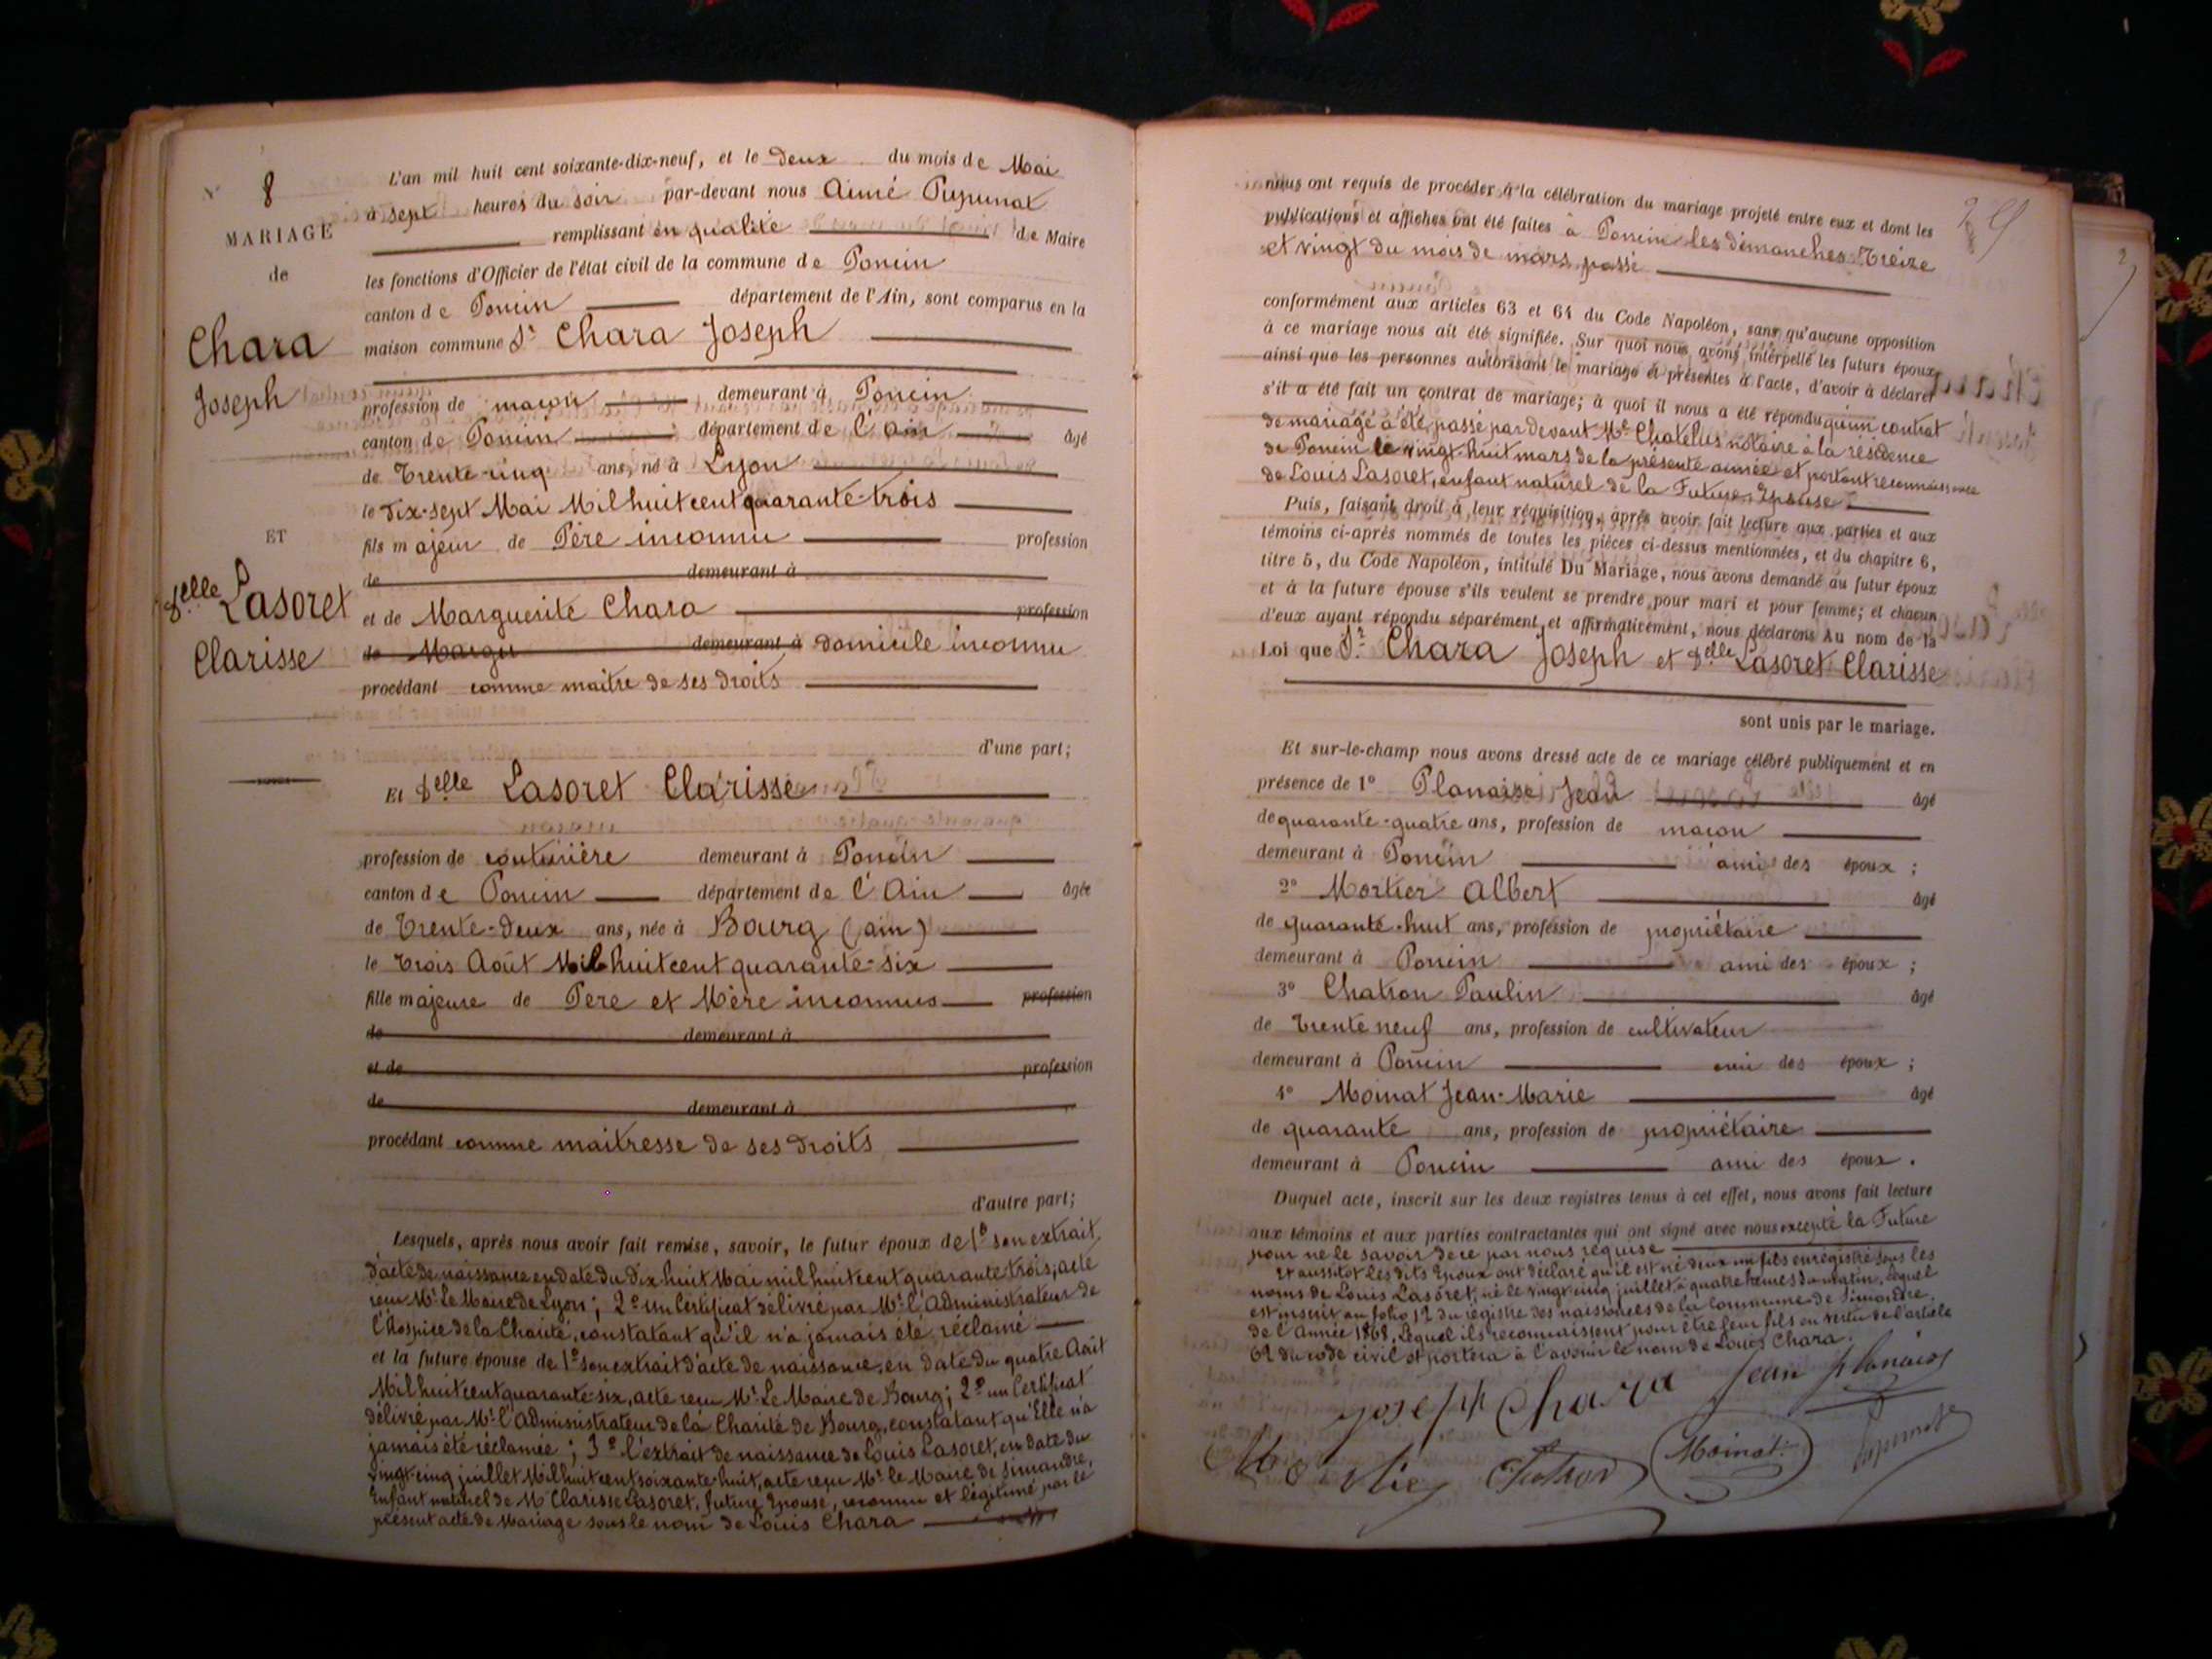 N° 8
MARIAGE
de
Chara
Joseph
ET
Delle Lasoret
Clarisse
L'an mil huit cent soixante-dix-neuf, et le deux du mois de Mai
à sept heures du soir par-devant nous Aimé Pupunat
remplissant en qualité de Maire
les fonctions d'Officier de l'état civil de la commune de Poncin
canton de Poncin département de l'Ain, sont comparus en la
maison commune Sr Chara Joseph
profession de maçon demeurant à Poncin
canton de Poncin département de l'Ain âgé
de Trente-cinq ans, né à Lyon
le Dix-sept Mai Mil huit cent quarante-trois
fils majeur de Père inconnu profession
de demeurant à
et de Marguerite Chara profession
de Margu demeurant à domicile inconnu
procédant comme maitre de ses droits
d'une part;
Et Delle Lasoret Clarisse
profession de couturière demeurant à Poncin
canton de Poncin département de l'Ain âgée
de Trente-deux ans, née à Bourg (ain)
le trois Août Mil huit cent quarante-six
fille majeure de Père et Mère inconnus profession
de demeurant à
et de profession
de demeurant à
procédant comme maitresse de ses droits
d'autre part;
Lesquels, après nous avoir fait remise, savoir, le futur époux de 1° son extrait
d'acte de naissance en date du dix huit Mai mil huit cent quarante trois, acte
reçu Mr Le Maire de Lyon; 2° un Certificat délivré par Mr l'Administrateur de
l'Hospice de la Charité, constatant qu'il n'a jamais été réclamé
et la future épouse de 1° son extrait d'acte de naissance, en date du quatre Août
Mil huit cent quarante-six, acte reçu Mr Le Maire de Bourg; 2° un Certificat
délivré par Mr l'Administrateur de la Charité de Bourg, constatant qu'Elle n'a
jamais été réclamée; 3° l'extrait de naissance de Louis Lasoret, en date du
vingt-cinq juillet Mil huit cent soixante huit, acte reçu Mr le Maire de Simandre,
Enfant naturel de Clarisse Lasoret, future Epouse, reconnu et légitimé par le
présent acte de Mariage sous le nom de Louis Chara
nous ont requis de procéder à la célébration du mariage projeté entre eux et dont les
publications et affiches ont été faites à Poncin les dimanches Treize
et vingt du mois de mars passé
conformément aux articles 63 et 64 du Code Napoléon, sans qu'aucune opposition
à ce mariage nous ait été signifiée. Sur quoi nous avons interpellé les futurs époux
ainsi que les personnes autorisant le mariage et présentes à l'acte, d'avoir à déclarer
s'il a été fait un contrat de mariage; à quoi il nous a été répondu qu'un contrat
de mariage a été passé par devant Me Chatelus notaire à la résidence
de Poncin le vingt-huit mars de la présente année et portant reconnaissance
de Louis Lasoret, enfant naturel de la Future Epouse.
Puis, faisant droit à leur réquisition, après avoir fait lecture aux parties et aux
témoins ci-après nommés de toutes les pièces ci-dessus mentionnées, et du chapitre 6,
titre 5, du Code Napoléon, intitulé Du Mariage, nous avons demandé au futur époux
et à la future épouse s'ils veulent se prendre pour mari et pour femme; et chacun
d'eux ayant répondu séparément et affirmativement, nous déclarons Au nom de la
Loi que Sr Chara Joseph et Delle Lasoret Clarisse
sont unis par le mariage.
Et sur-le-champ nous avons dressé acte de ce mariage célébré publiquement et en
présence de 1° Planaise Jean âgé
de quarante-quatre ans, profession de maçon
demeurant à Poncin ami des époux;
2° Mortier Albert âgé
de quarante-huit ans, profession de propriétaire
demeurant à Poncin ami des époux;
3° Chatron Paulin âgé
de Trente neuf ans, profession de cultivateur
demeurant à Poncin ami des époux;
4° Moinat Jean-Marie âgé
de quarante ans, profession de propriétaire
demeurant à Poncin ami des époux.
Duquel acte, inscrit sur les deux registres tenus à cet effet, nous avons fait lecture
aux témoins et aux parties contractantes qui ont signé avec nous excepté la Future
pour ne le savoir de ce par nous requise
Et aussitôt les dits Epoux ont déclaré qu'il est né d'eux un fils enregistré sous les
noms de Louis Lasoret, né le vingt-cinq juillet à quatre heures du matin, lequel
est inscrit au folio 12 du registre des naissances de la Commune de Simandre
de l'année 1868, Lequel ils reconnaissent pour être leur fils en vertu de l'article
62 du code civil et portera à l'avenir le nom de Louis Chara.
Joseph Chara Jean planaise
Mortier Chatron Moinat Pupunat